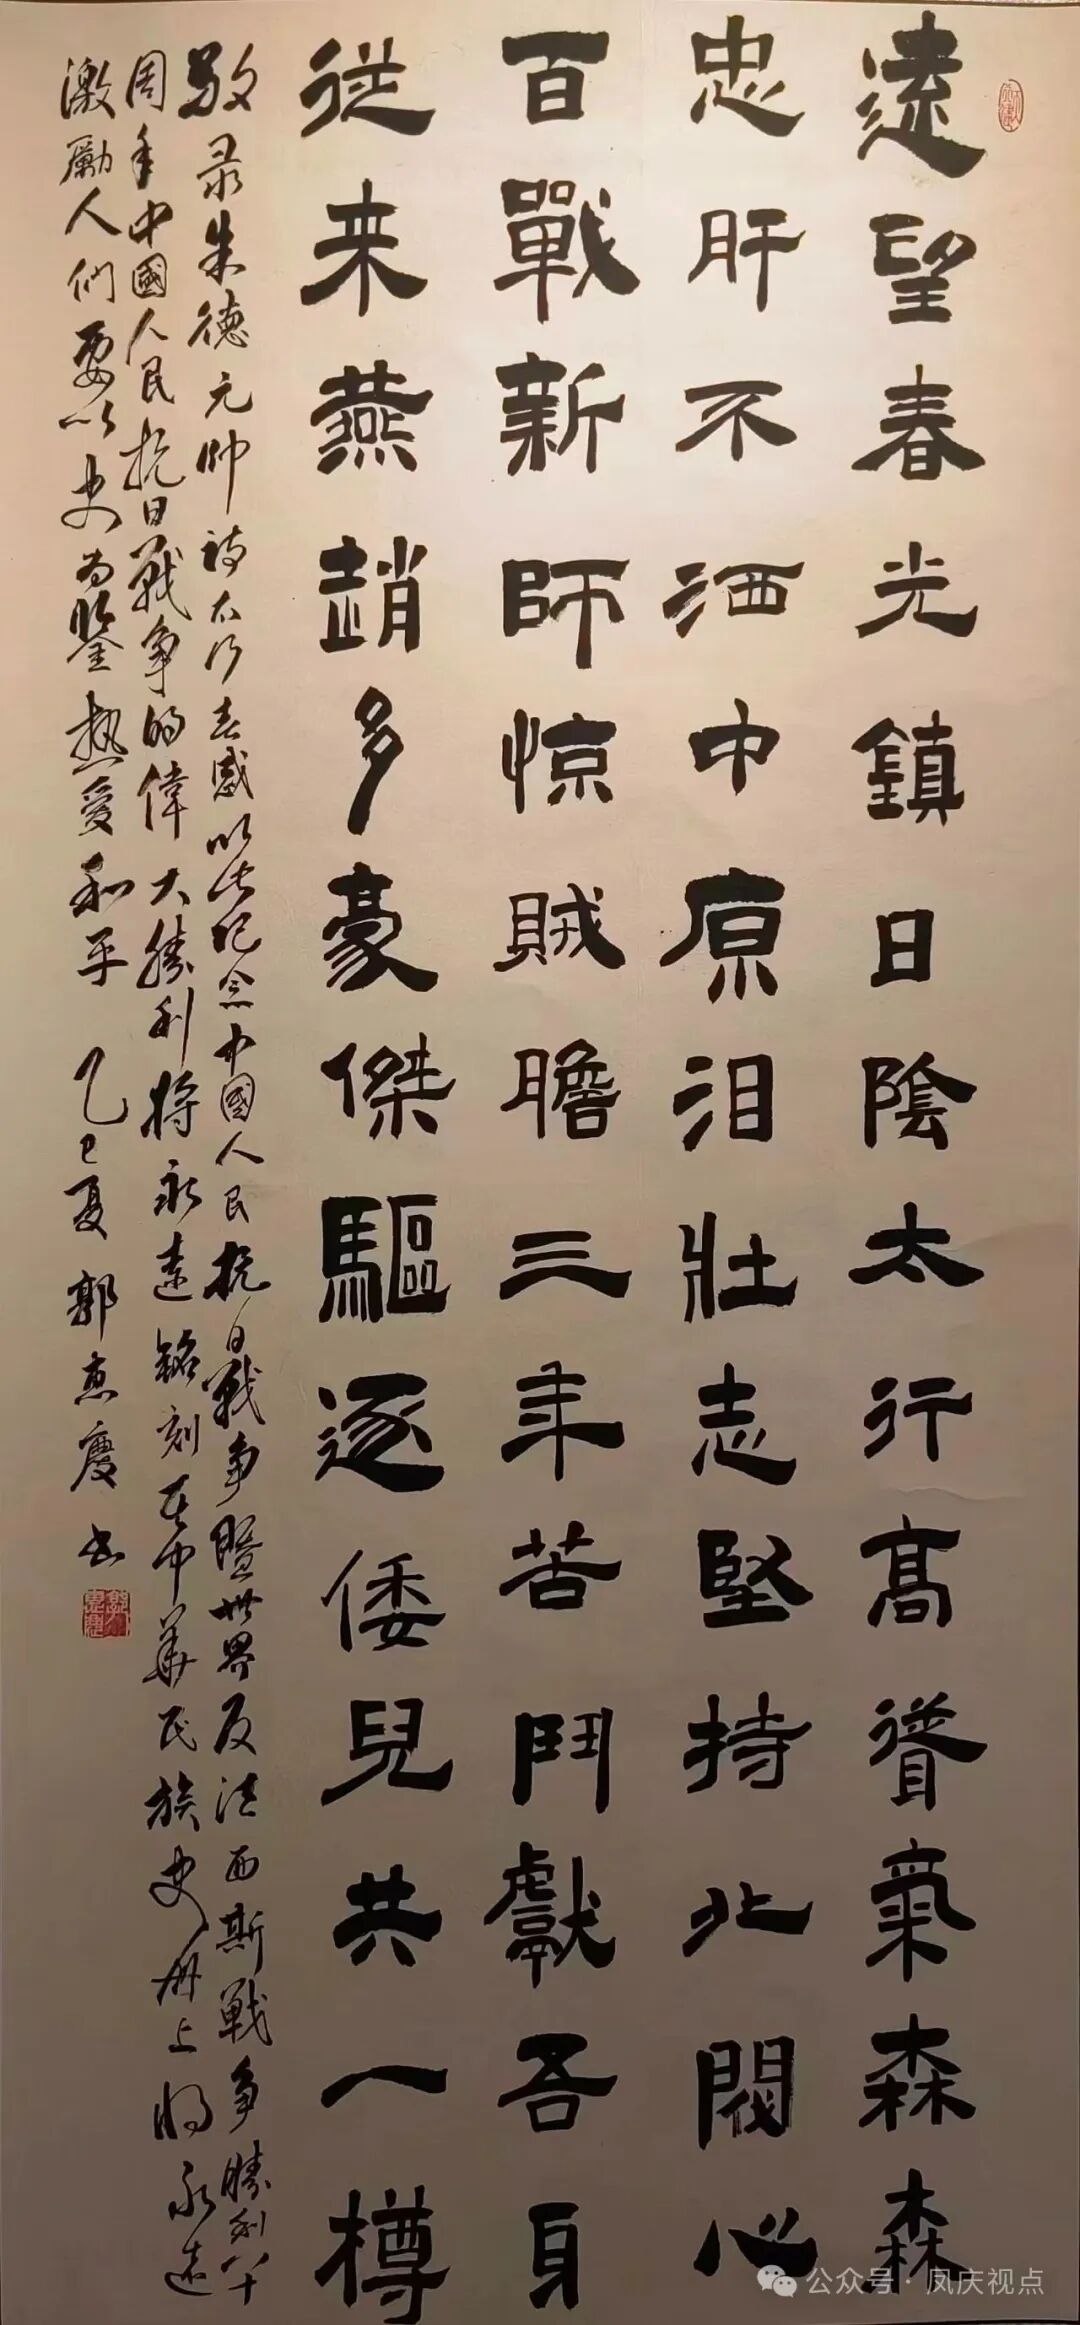 遠望春光鎮日陰太行高聳氣森森
忠肝不洒中原泪壯志堅持北閥心
百戰新師惊賊膽三年苦鬥獻吾身
從来燕趙多豪傑驅逐倭兒共一樽
敬录朱德元帅诗太行春感以此纪念中國人民抗日戰争暨世界反法西斯戰争勝利八十
周年中國人民抗日戰争的偉大勝利将永遠銘刻在中華民族史册上将永遠
激勵人们要以史为鑒热爱和平 乙巳夏 郭惠慶书
公众号·凤庆视点